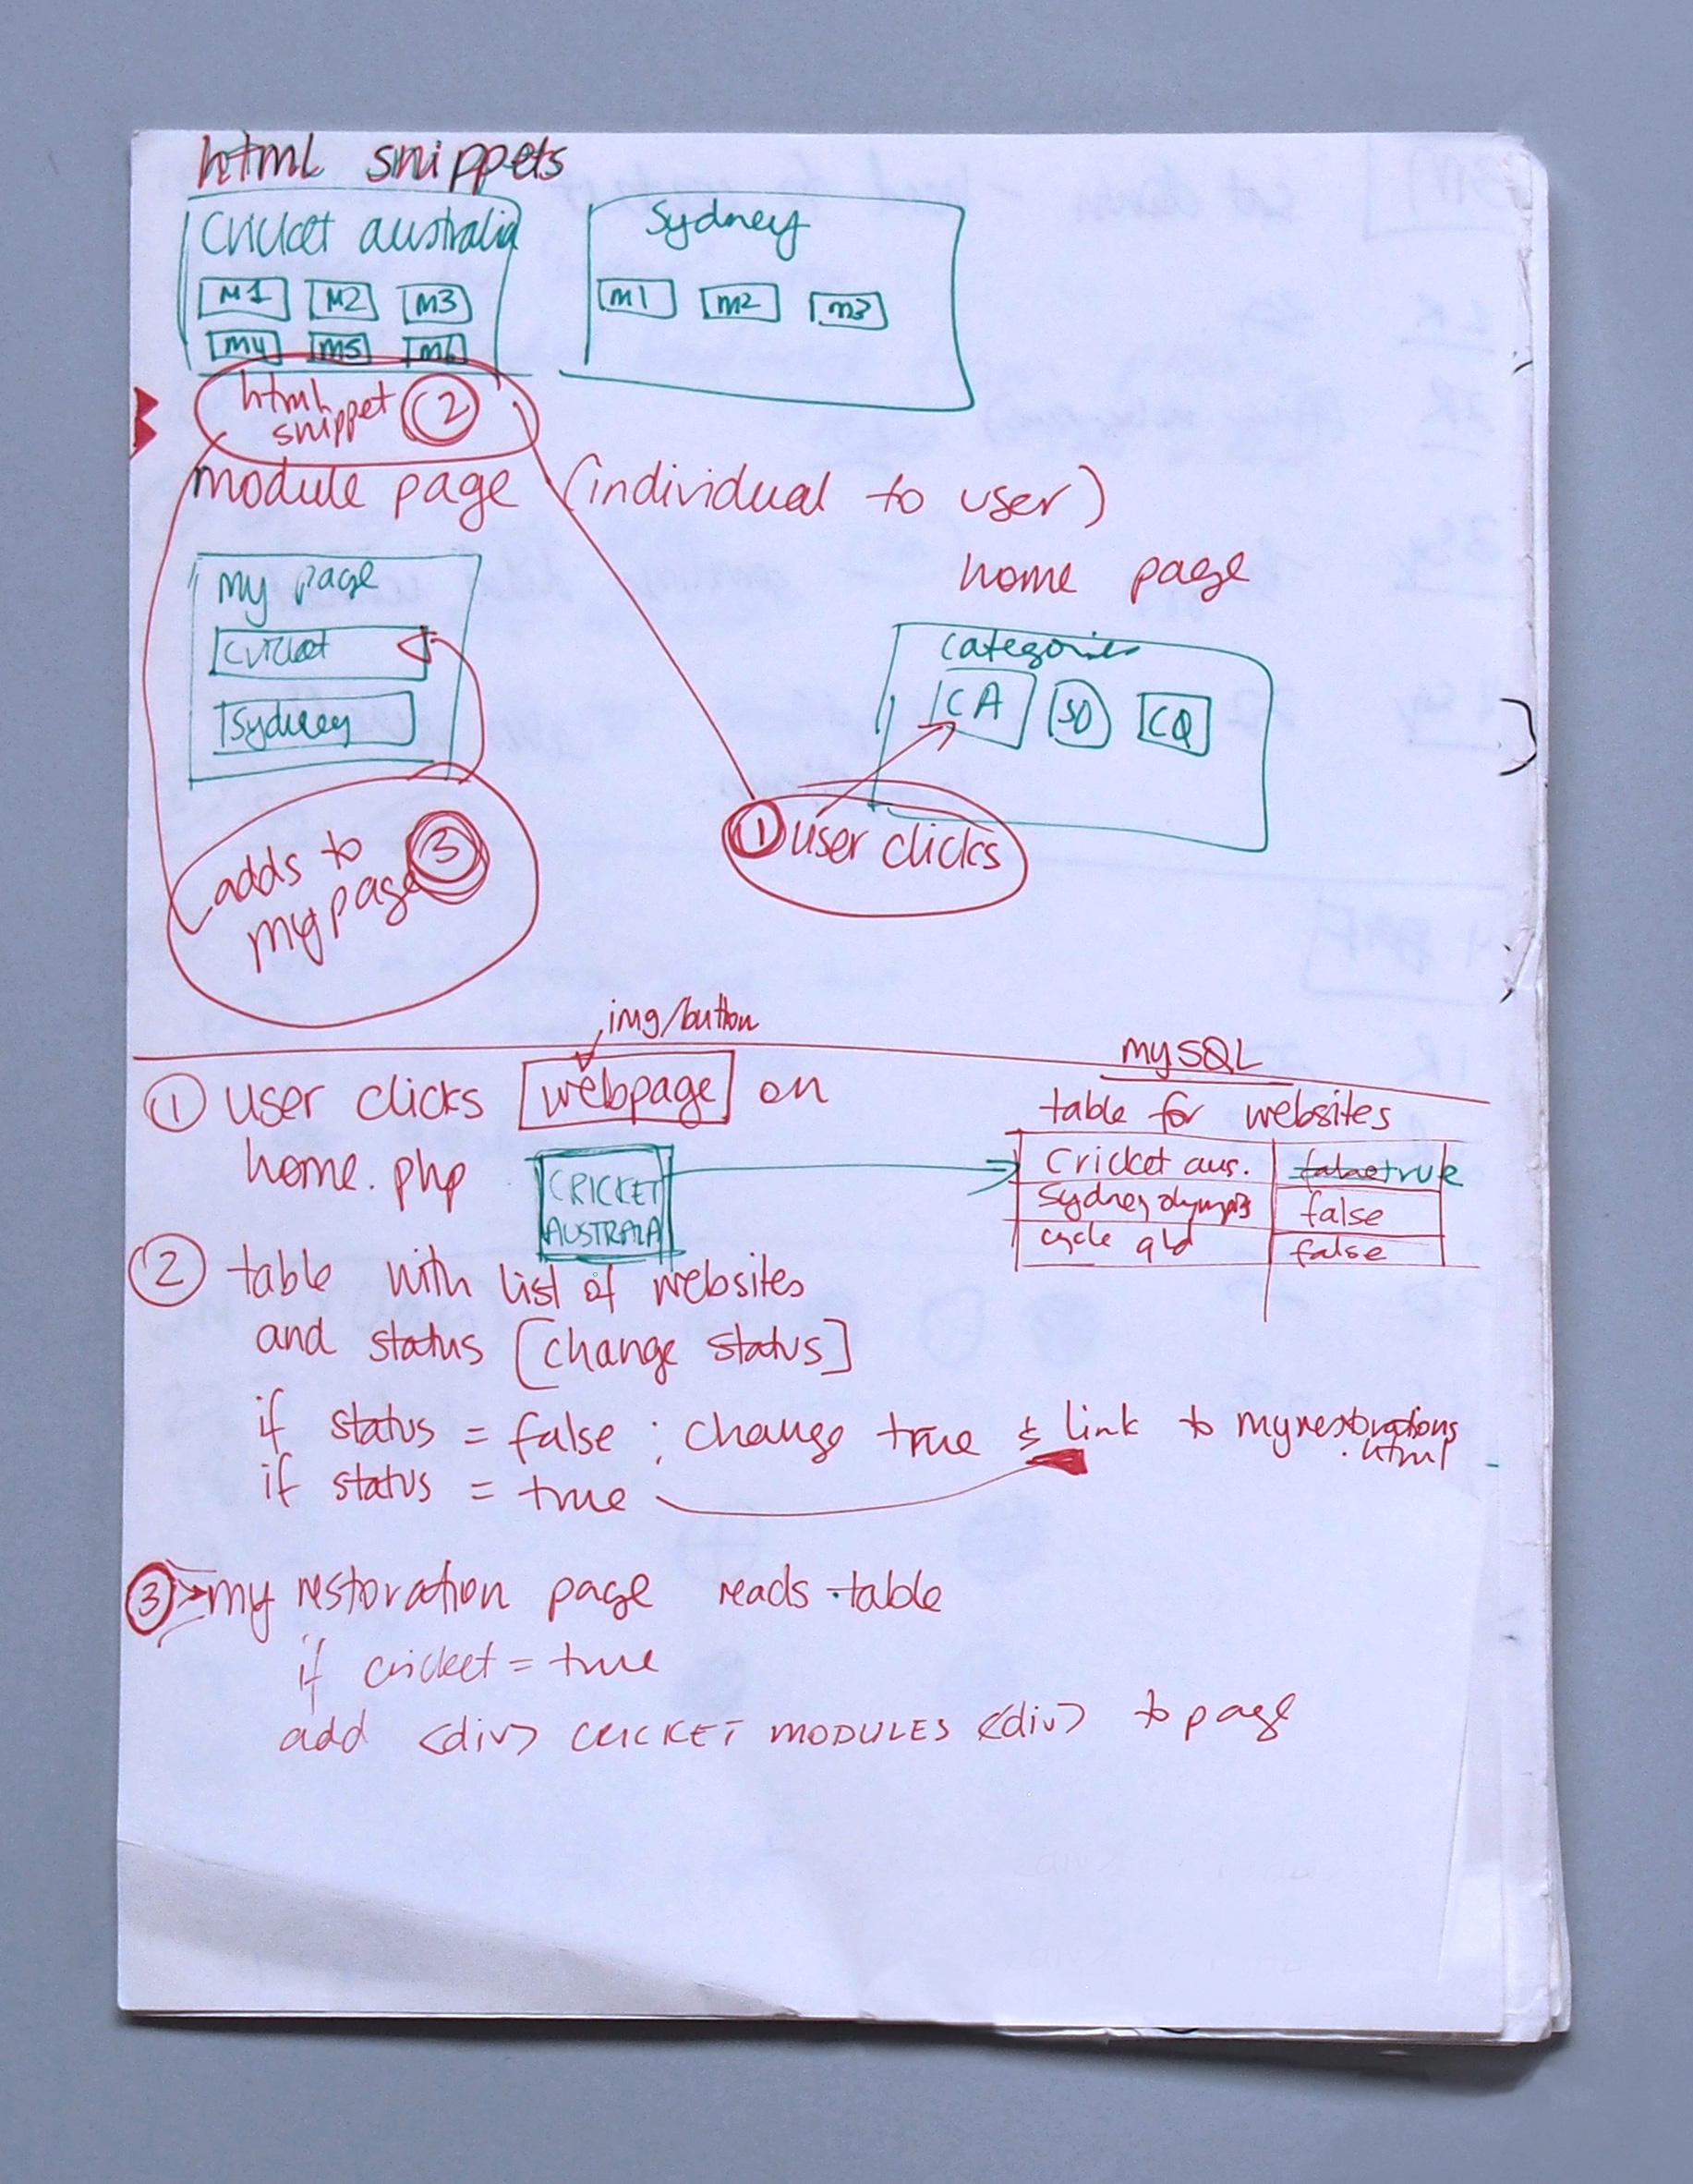 html snippets
Cricket australia
M1 M2 M3
m4 m5 m6
Sydney
m1 m2 m3
html snippet 2
module page (individual to user)
my page
cricket
Sydney
home page
categories
CA SO CQ
1 user clicks
adds to 3
my page
img/button
1 user clicks webpage on
home.php
CRICKET
AUSTRALA
mySQL
table for websites
Cricket aus. false true
Sydney olympis false
cycle qld false
2 table with list of websites
and status [change status]
if status = false ; change true & link to myrestorations
.html
if status = true
3 my restoration page reads table
if cricket = true
add <div> CRICKET MODULES <div> to page